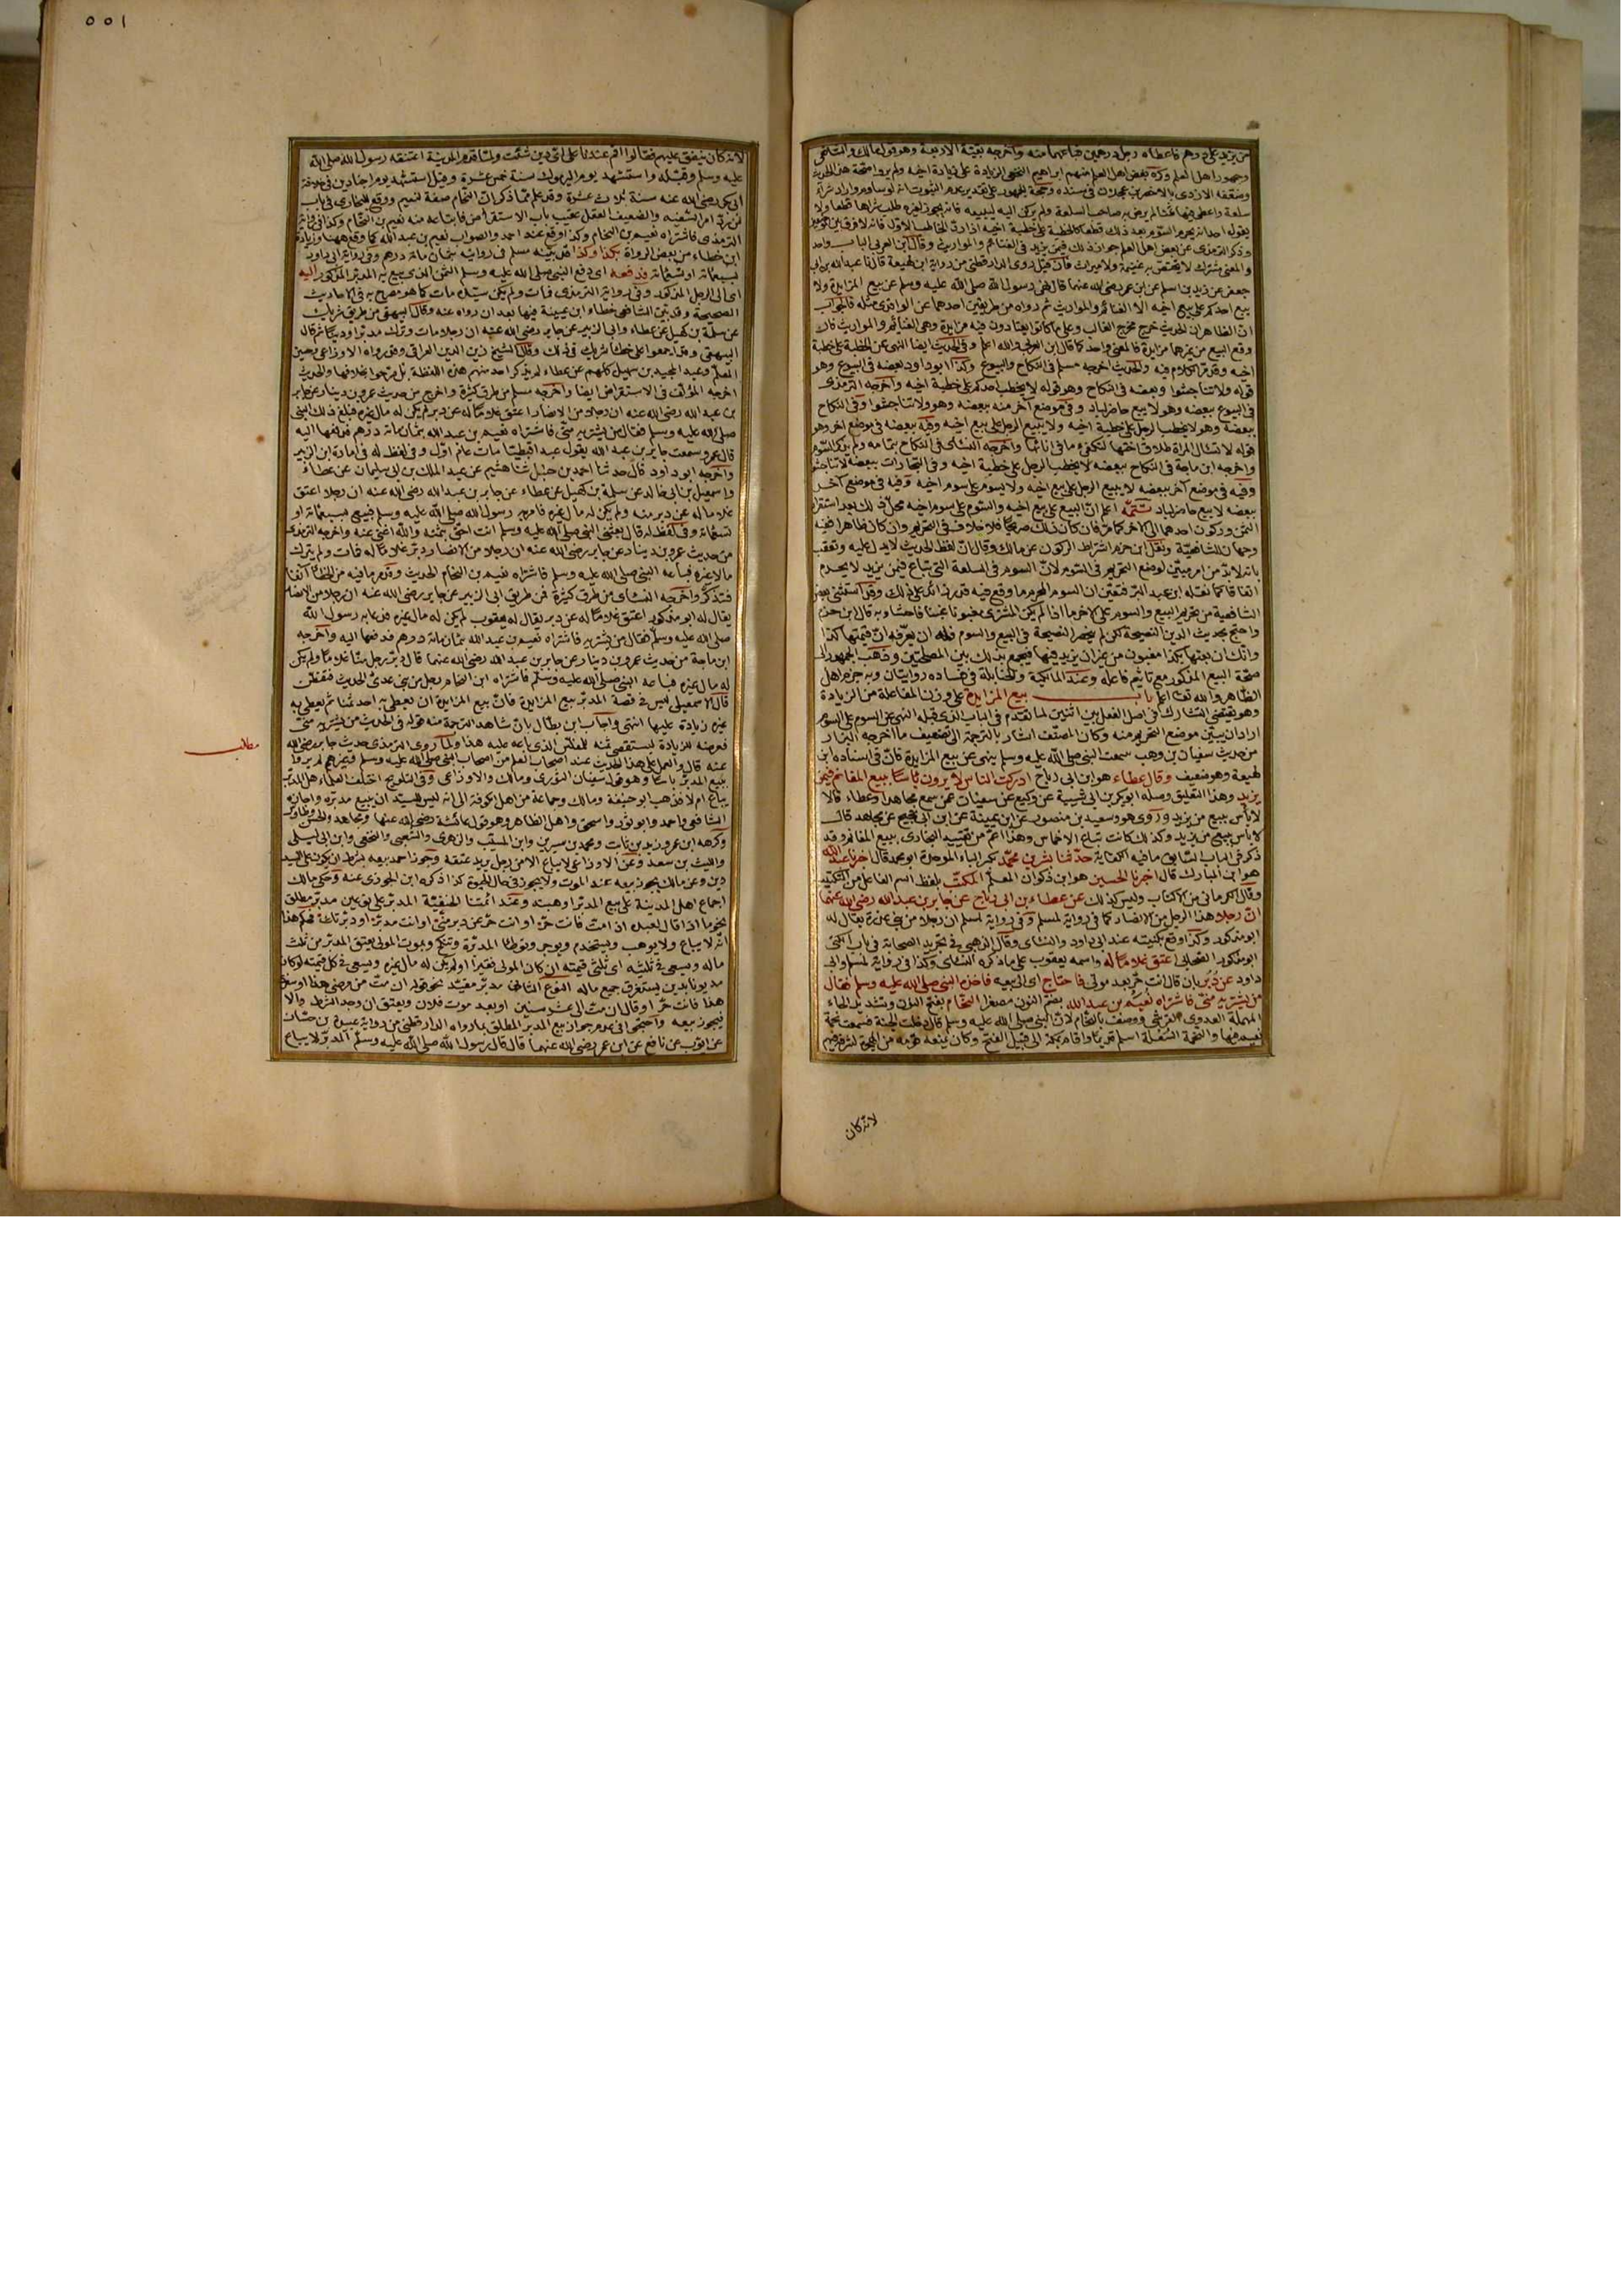 من يزيد على درهم فاعطاه رجل درهمين فباعهما منه واخرجه بقية الاربعة وهو قول مالك والشافعي
وجمهور اهل العلم وكره بعض اهل العلم منهم ابراهيم النخعي الزيادة على زيادة اخيه ولم يروا صحة هذا الحديث
وضعفه الازدي بالاخضر بن عجلان في سنده وحجة الجمهور على تقدير عدم الثبوت انه لو ساوم واراد شراء
سلعة واعطى فيها ثمنا لم يرض به صاحب السلعة ولم يركن اليه ليبيعه فانه يجوز لغيره طلب شراها قطعا ولا
يقول احد انه يحرم السوم بعد ذلك قطعا كالخطبة على خطبة اخيه اذا رد الخاطب الاول فانه لا فرق بين
وذكر الترمذي عن بعض اهل العلم جواز ذلك فيمن يزيد في الغنائم والمواريث وقال ابن العربي الباب واحد
والمعنى مشترك لا يختص به غنيمة ولا ميراث فان قيل روى الدارقطني من رواية ابن لهيعة قال نا عبد الله بن ابي
جعفر عن زيد بن اسلم عن ابن عمر رضي الله عنهما قال نهى رسول الله صلى الله عليه وسلم عن بيع المزايدة ولا
يبع احدكم على بيع اخيه الا الغنائم والمواريث ثم رواه من طريقين احدهما عن الواقدي مثله فالجواب
ان الظاهر ان الحديث خرج مخرج الغالب وعلى ما كانوا يعتادون فيه مزايدة وهي الغنائم والمواريث فان
وقع البيع من غيرهما مزايدة فالمعنى واحد كما قال ابن العربي والله اعلم وفي الحديث ايضا النهي عن الخطبة على خطبة
اخيه وقد مر الكلام فيه والحديث اخرجه مسلم في النكاح والبيوع وكذا ابو داود بعضه في البيوع وهو
قوله ولا تناجشوا وبعضه في النكاح وهو قوله لا يخطب احدكم على خطبة اخيه واخرجه الترمذي
في البيوع ببعضه وهو لا يبع حاضر لباد وفي موضع آخر منه ببعضه وهو ولا تناجشوا وفي النكاح
ببعضه وهو لا يخطب الرجل على خطبة اخيه ولا يبيع الرجل على بيع اخيه وفيه ببعضه في موضع اخر وهو
قوله لا تسال المراة طلاق اختها لتكفيء ما في انائها واخرجه النسائي في النكاح بتمامه ولم يذكر السوم
واخرجه ابن ماجة في النكاح ببعضه لا يخطب الرجل على خطبة اخيه وفي التجارات ببعضه لا تناجشوا
وفيه في موضع آخر ببعضه لا يبيع الرجل على بيع اخيه ولا يسوم على سوم اخيه وفيه في موضع آخر
ببعضه لا يبيع حاضر لباد تتمّة اعلم ان البيع على بيع اخيه والسوم على سوم اخيه محلّ ذلك بعد استقرار
الثمن وركون احدهما الى الاخر كما مرّ فان كان ذلك صريحا فلا خلاف في التحريم وان كان ظاهرا ففيه
وجهان للشافعيّة ونقل ابن حزم اشتراط الركون عن مالك وقال ان لفظ الحديث لا يدل عليه وتعقب
بانه لا بدّ من امر مبيّن لموضع التحريم في السوم لانّ السوم في السلعة التي تباع فيمن يزيد لا يحرم
اتفاقا كما نقله ابن عبد البرّ فتعيّن ان السوم المحرم ما وقع فيه قدر زائد على ذلك وقد استثنى بعض
الشافعية من تحريم البيع والسوم على الاخر ما اذا لم يكن المشتري مغبونا غبنا فاحشا وبه قال ابن حزم
واحتج بحديث الدين النصيحة لكن لم ينحصر النصيحة في البيع والسوم فله ان يعرّفه انّ قيمتها كذا
وانّك ان بعتها بكذا مغبون من غير ان يزيد فيها فيجمع بذلك بين المصلحتين وذهب الجمهور الى
صحّة البيع المذكور مع تاثيم فاعله وعند المالكية والحنابلة في فساده روايتان وبه جزم اهل
الظاهر والله تعالى اعلم باب بيع المزايدة على وزن المفاعلة من الزيادة
وهو يقتضي التشارك في اصل الفعل بين اثنين لما تقدم في الباب الذي قبله النهي عن السوم على السوم
اراد ان يبيّن موضع التحريم منه وكان المصنّف اشار بالترجمة الى تضعيف ما اخرجه البزار
من حديث سفيان بن وهب سمعت النبي صلى الله عليه وسلم ينهى عن بيع المزايدة فانّ في اسناده ابن
لهيعة وهو ضعيف وقال عطاء هو ابن ابي رباح ادركت الناس لا يرون باسا ببيع المغانم فيمن
يزيد وهذا التعليق وصله ابو بكر بن ابي شيبة عن وكيع عن سفيان عمن سمع مجاهدا وعطاء قالا
لا باس ببيع من يزيد وروى هو وسعيد بن منصور عن ابن عيينة عن ابن ابي نجيح عن مجاهد قال
لا باس ببيع من يزيد وكذلك كانت تباع الاخماس وهذا اعمّ من تقييد البخاري ببيع المغانم وقد
ذكر في الباب السابق ما فيه الكفاية حدّثنا بشر بن محمّد بكسر الباء الموحدة ابو محمد قال اخبرنا عبد الله
هو ابن المبارك قال اخبرنا الحسين هو ابن ذكوان المعلّم المكتب بلفظ اسم الفاعل من التكتيب
وقال الكرماني من الاكتاب وليس كذلك عن عطاء بن ابي رباح عن جابر بن عبد الله رضي الله عنهما
انّ رجلا هذا الرجل من الانصار كما في رواية لمسلم وفي رواية لمسلم ان رجلا من بني عذرة يقال له
ابو مذكور وكذا وقع بكنيته عند ابي داود والنسائي وقال الذهبي في تجريد الصحابة في باب الكنى
ابو مذكور الصحابي اعتق غلاما له واسمه يعقوب على ما ذكره النسائي وكذا في رواية لمسلم وابي
داود عن دُبُر بان قال انت حرّ بعد موتي فاحتاج اي الى بيعه فاخذه النبي صلى الله عليه وسلم فقال
من يشتريه منّي فاشتراه نُعَيْم بن عبد الله بضم النون مصغرا النحّام بفتح النون وتشديد الحاء
المهملة العدوي القرشي ووصف بالنحّام لانّ النبي صلى الله عليه وسلم قال دخلت الجنة فسمعت نحمة
نعيم فيها والنحمة السّعلة اسلم قديما واقام بمكة الى قبيل الفتح وكان يمنعه قومه من الهجرة لشرفه فيهم
لانه كان
٥٥١
لانه كان ينفق عليهم فقالوا اقم عندنا على ايّ دين شئت ولمّا قدم المدينة اعتنقه رسول الله صلى الله
عليه وسلم وقبّله واستشهد يوم اليرموك سنة خمس عشرة وقيل استشهد يوم اجنادين في خلافة
ابي بكر رضي الله عنه سنة ثلاث عشرة وقد علم ممّا ذكر انّ النحّام صفة لنعيم ووقع للبخاري في باب
من ردّ امر السفيه والضعيف العقل عقيب باب الاستقراض فابتاعه منه نعيم بن النحّام وكذا في
الترمذي فاشتراه نعيم بن النحام وكذا وقع عند احمد والصواب نعيم بن عبد الله كما وقع ههنا وزيادة
ابن خطاء من بعض الرواة بكذا وكذا قد بيّنه مسلم في رواية بثمان مائة درهم وفي رواية ابي داود
بسبعمائة او تسعمائة فدفعه اي دفع النبي صلى الله عليه وسلم الثمن الذي بيع به المدبّر المذكور اليه
اي الى الرجل المذكور وفي رواية الترمذي فمات ولم يكن سيّده مات كما هو مصرح به في الاحاديث
الصحيحة وقد بيّن الشافعي خطاء ابن عيينة فيها بعد ان رواه عنه وقال البيهقي من طريق شريك
عن سلمة بن كهيل عن عطاء وابي الزبير عن جابر رضي الله عنه ان رجلا مات وترك مدبّرا ودينا ثم قال
البيهقي وقد اجمعوا على خطأ شريك في ذلك وقال الشيخ زين الدين العراقي وقد رواه الاوزاعي وحسين
المعلّم وعبد المجيد بن سهيل كلهم عن عطاء لم يذكر احد منهم هذه اللفظة بل صرّحوا بخلافها والحديث
اخرجه المؤلّف في الاستقراض ايضا واخرجه مسلم من طرق كثيرة واخرج من حديث عمرو بن دينار عن جابر
بن عبد الله رضي الله عنه ان رجلا من الانصار اعتق غلاما له عن دبر لم يكن له مال غيره فبلغ ذلك النبي
صلى الله عليه وسلم فقال من يشتريه منّي فاشتراه نعيم بن عبد الله بثمان مائة درهم فدفعها اليه
قال عمرو سمعت جابر بن عبد الله يقول عبدا قبطيّا مات عام اوّل وفي لفظ له في امارة ابن الزبير
واخرجه ابو داود قال حدثنا احمد بن حنبل ثنا هشيم عن عبد الملك بن ابي سليمان عن عطاء
واسمعيل بن ابي خالد عن سلمة بن كهيل عن عطاء عن جابر بن عبد الله رضي الله عنه ان رجلا اعتق
غلاما له عن دبر منه ولم يكن له مال غيره فامر به رسول الله صلى الله عليه وسلم فبيع بسبعمائة او
تسعمائة وفي لفظ له قال يعني النبي صلى الله عليه وسلم انت احق بثمنه والله اغنى عنه واخرجه الترمذي
من حديث عمرو بن دينار عن جابر رضي الله عنه ان رجلا من الانصار دبّر غلاما له فمات ولم يترك
مالا غيره فباعه النبي صلى الله عليه وسلم فاشتراه نعيم بن النحام الحديث وقد مر ما فيه من الخطأ آنفا
فتذكّر واخرجه النسائي من طرق كثيرة فمن طريق ابي الزبير عن جابر رضي الله عنه ان رجلا من الانصار
يقال له ابو مذكور اعتق غلاما له عن دبر يقال له يعقوب لم يكن له مال غيره فدعا به رسول الله
صلى الله عليه وسلّم فقال من يشتريه فاشتراه نعيم بن عبد الله بثمان مائة درهم فدفعها اليه واخرجه
ابن ماجة من حديث عمرو بن دينار عن جابر بن عبد الله رضي الله عنهما قال دبّر رجل منّا غلاما ولم يكن
له مال غيره فباعه النبي صلى الله عليه وسلّم فاشتراه ابن النحام رجل من بني عدي الحديث فتفطّن
قال الاسمعيلي ليس في قصة المدبّر بيع المزايدة فانّ بيع المزايدة ان يعطي به احد ثمنا ثم يعطي به
غيره زيادة عليها انتهى واجاب ابن بطّال بانّ شاهد الترجمة منه قوله في الحديث من يشتريه منّي
فعرضه للزيادة ليستقصي ثمنه للمفلّس الذي باعه عليه هذا ولمّا روى الترمذي حديث جابر رضي الله
عنه قال والعمل على هذا الحديث عند اصحاب العلم من اصحاب النبي صلى الله عليه وسلم وغيرهم لم يروا
ببيع المدبّر باسا وهو قول سفيان الثوري ومالك والاوزاعي وفي التلويح اختلف العلماء هل المدبّر
يباع ام لا فذهب ابو حنيفة ومالك وجماعة من اهل الكوفة الى انه ليس للسيّد ان يبيع مدبّره واجازه
الشافعي واحمد وابو ثور واسحق واهل الظاهر وهو قول عائشة رضي الله عنها ومجاهد والحسن وطاوس
وكرهه ابن عمر وزيد بن ثابت ومحمد بن سيرين وابن المسيّب والزهري والشعبي والنخعي وابن ابي ليلى
والليث بن سعد وعن الاوزاعي لا يباع الا من رجل يريد عتقه وجوّز احمد بيعه بشرط ان يكون على السيد
دين وعن مالك يجوز بيعه عند الموت ولا يجوز في حال الحيوة كذا ذكره ابن الجوزي عنه وحكى مالك
اجماع اهل المدينة على بيع المدبّر او هبته وعند ائمّتنا الحنفيّة المدبّر على نوعين مدبّر مطلق
نحو ما اذا قال لعبده اذا متّ فانت حرّ او انت حرّ عن دبر منّي او انت مدبّر او دبّرتك فحكم هذا
انّه لا يباع ولا يوهب ويستخدم ويوجر وتوطا المدبّرة وتنكح وبموت المولى يعتق المدبّر من ثلث
ماله ويسعى في ثلثيه اي ثلثي قيمته ان كان المولى فقيرا او لم يكن له مال غيره ويسعى في كل قيمته لو كان
مديونا بدين يستغرق جميع ماله النوع الثاني مدبّر مقيّد نحو قوله ان متّ من مرضي هذا او سفري
هذا فانت حرّ او قال ان متّ الى عشر سنين او بعد موت فلان ويعتق ان وجد الشرط والا
فيجوز بيعه واحتجّوا في عدم جواز بيع المدبّر المطلق بما رواه الدارقطني من رواية عبيدة بن حسّان
عن ايوب عن نافع عن ابن عمر رضي الله عنهما قال قال رسول الله صلى الله عليه وسلّم المدبّر لا يباع
مطلب